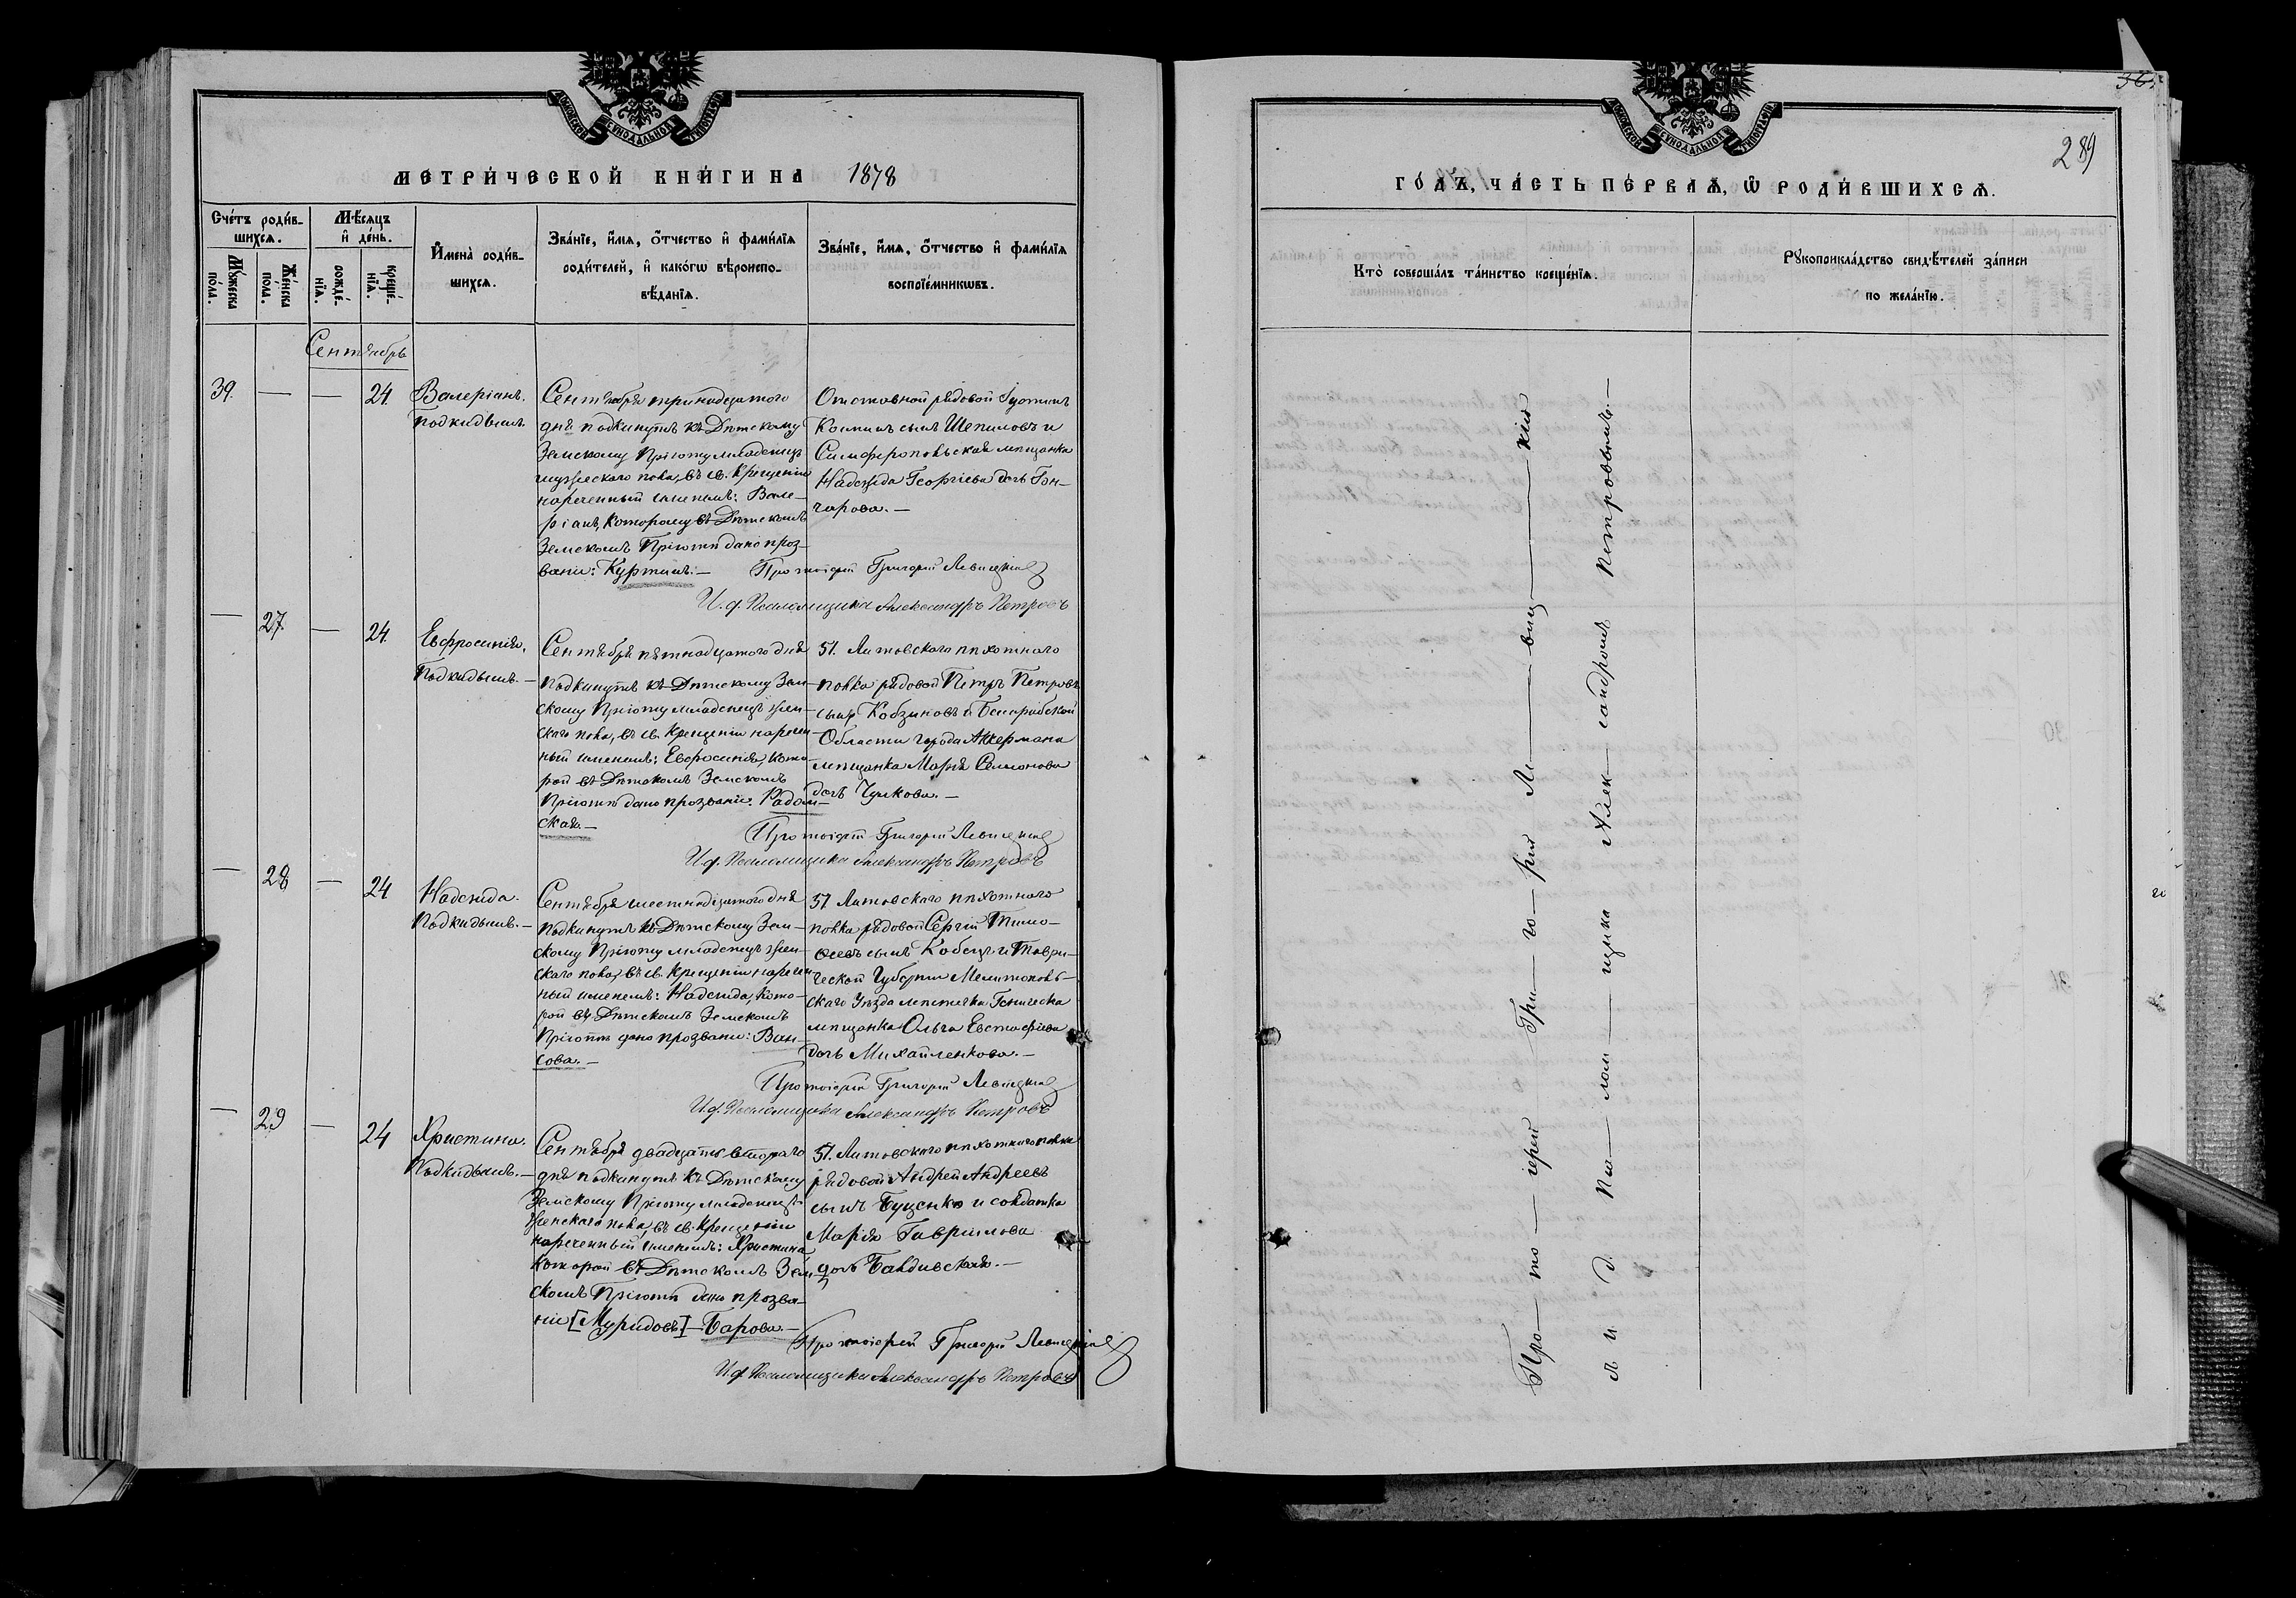 МОСКОВСКОЙ СѴНОДАЛЬНОЙ ТИПОГРАФІИ
МЕТРИ́ЧЕСКОЙ КНИ́ГИ НА 1878
Сче́тъ роди́в-
шихсѧ.
Мѣ́сѧцъ
и҆ де́нь.
Мꙋ́жеска
по́ла.
Же́нска
по́ла.
рожде́-
нїѧ.
креще́-
нїѧ.
И҆мена̀ роди́в-
шихсѧ.
Зва́нїе, и҆́мѧ, о҆́тчество и҆ фами́лїѧ
роди́телей, и҆ како́гѡ вѣроиспо-
вѣ́данїѧ.
Зва́нїе, и҆́мѧ, о҆́тчество и҆ фами́лїѧ
воспрїе́мникѡвъ.
Сентябрь
39. — — 24. Валеріанъ.
Подкидышъ.
Сентября тринадцатого
дня подкинутъ къ Дѣтскому
Земскому Пріюту младенецъ
мужескаго пола, въ св. Крещеніи
нареченный именемъ: Вале-
ріанъ, которому въ Дѣтскомъ
Земскомъ Пріютѣ дано проз-
ваніе: Куртинъ.—
Отставной рядовой
сынъ Шепиловъ и
Симферопольская мѣщанка
Надежда Георгіева дочь Гон-
чарова.—
Протоіерей Григорій Левицкій
И. д. Псаломщика Александръ Петровъ
— 27. — 24. Евфросинія.
Подкидышъ.—
Сентября пятнадцатого дня
подкинутъ къ Дѣтскому Зем-
скому Пріюту младенецъ жен-
скаго пола, въ св. Крещеніи наречен-
ный именемъ: Евфросинія, кото-
рой въ Дѣтскомъ Земскомъ
Пріютѣ дано прозваніе: Радом-
ская.—
51. Литовскаго пѣхотнаго
полка рядовой Петръ Петровъ
сынъ Кобзиновъ и Бессарабской
Области города Аккермана
мѣщанка Марія Семионова
дочь Чулкова.—
Протоіерей Григорій Левицкій
И. д. Псаломщика Александръ Петровъ
— 28 — 24 Надежда.
Подкидышъ.—
Сентября шестнадцатого дня
подкинутъ къ Дѣтскому Зем-
скому Пріюту младенецъ жен-
скаго пола, въ св. Крещеніи наречен-
ный именемъ: Надежда, кото-
рой въ Дѣтскомъ Земскомъ
Пріютѣ дано прозваніе: Ван-
сова.—
51 Литовскаго пѣхотнаго
полка рядовой Сергій Тимо-
ѳеевъ сынъ Кобецъ и Таври-
ческой Губерніи Мелитополь-
скаго Уѣзда мѣстечка Геническа
мѣщанка Ольга Евстафіева
дочь Михайленкова.—
Протоіерей Григорій Левицкій
И. д. Псаломщика Александръ Петровъ
— 29 — 24 Христина.
Подкидышъ.—
Сентября двадцать втораго
дня подкинутъ къ Дѣтскому
Земскому Пріюту младенецъ
женскаго пола, въ св. Крещеніи
нареченный именемъ: Христина
которой въ Дѣтскомъ Зем-
скомъ Пріютѣ дано прозва-
ніе [Муридовъ]—Барова.—
51. Литовскаго пѣхотнаго полка
рядовой Андрей Андреевъ
сынъ Буценко и солдатка
Марія Гавриилова
дочь Балдивская.—
Протоіерей Григорій Левицкій
И. д. Псаломщика Александръ Петровъ
МОСКОВСКОЙ СѴНОДАЛЬНОЙ ТИПОГРАФІИ
289
ГО́ДЪ, ЧА́СТЬ ПЕ́РВАѦ, Ѡ҆ РОДИ́ВШИХСѦ.
Кто̀ соверша́лъ та́инство креще́нїѧ.
Рꙋкоприкла́дство свидѣ́телей за́писи
по жела́нїю.
Про— то— іерей Гри— го— рій Ле— виц— кій
и. д. Пса— лом— щика Алек— сандромъ Петровымъ.—